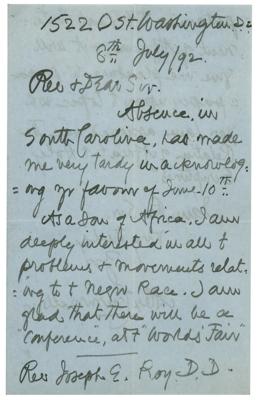 1522 O St. Washington D.C
8th July/92.
Rev & Dear Sir.
Absence, in
South Carolina, has made
me very tardy in acknowlog-
=ing yr favour of June 10th.
As a son of Africa. I am
deeply interested in all t
problems & movements relat-
:ing to t Negro Race. I am
glad that there will be a
conference, at t "World's Fair"
Rev Joseph E. Roy. D.D.